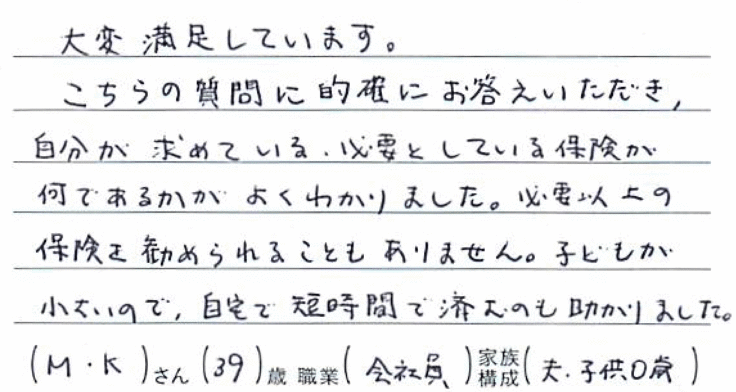 大変満足しています。
こちらの質問に的確にお答えいただき,
自分が求めている.必要としている保険が
何であるかがよくわかりました。必要以上の
保険を勧められることもありません。子どもが
小さいので,自宅で短時間で済むのも助かりました。
(M・K)さん(39)歳 職業(会社員)家族構成(夫・子供0歳)